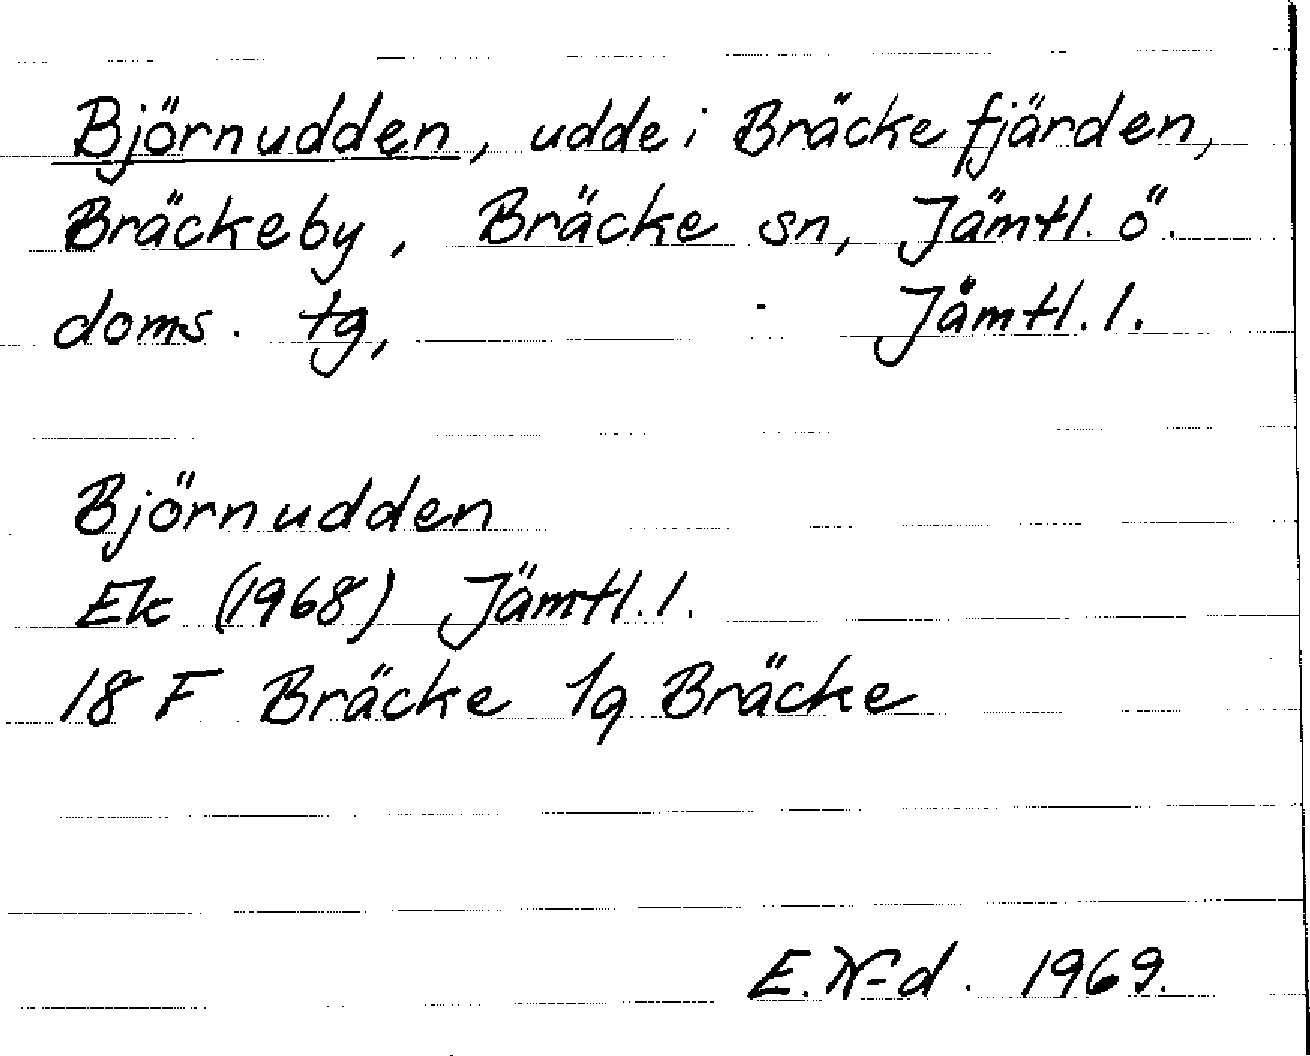 Björnudden, udde i Bräckefjärden,
Bräckeby, Bräcke sn, Jämtl. ö.
doms. tg, Jämtl. l.
Björnudden
Ek (1968) Jämtl. l.
18 F Bräcke 1g Bräcke
E. N-d. 1969.